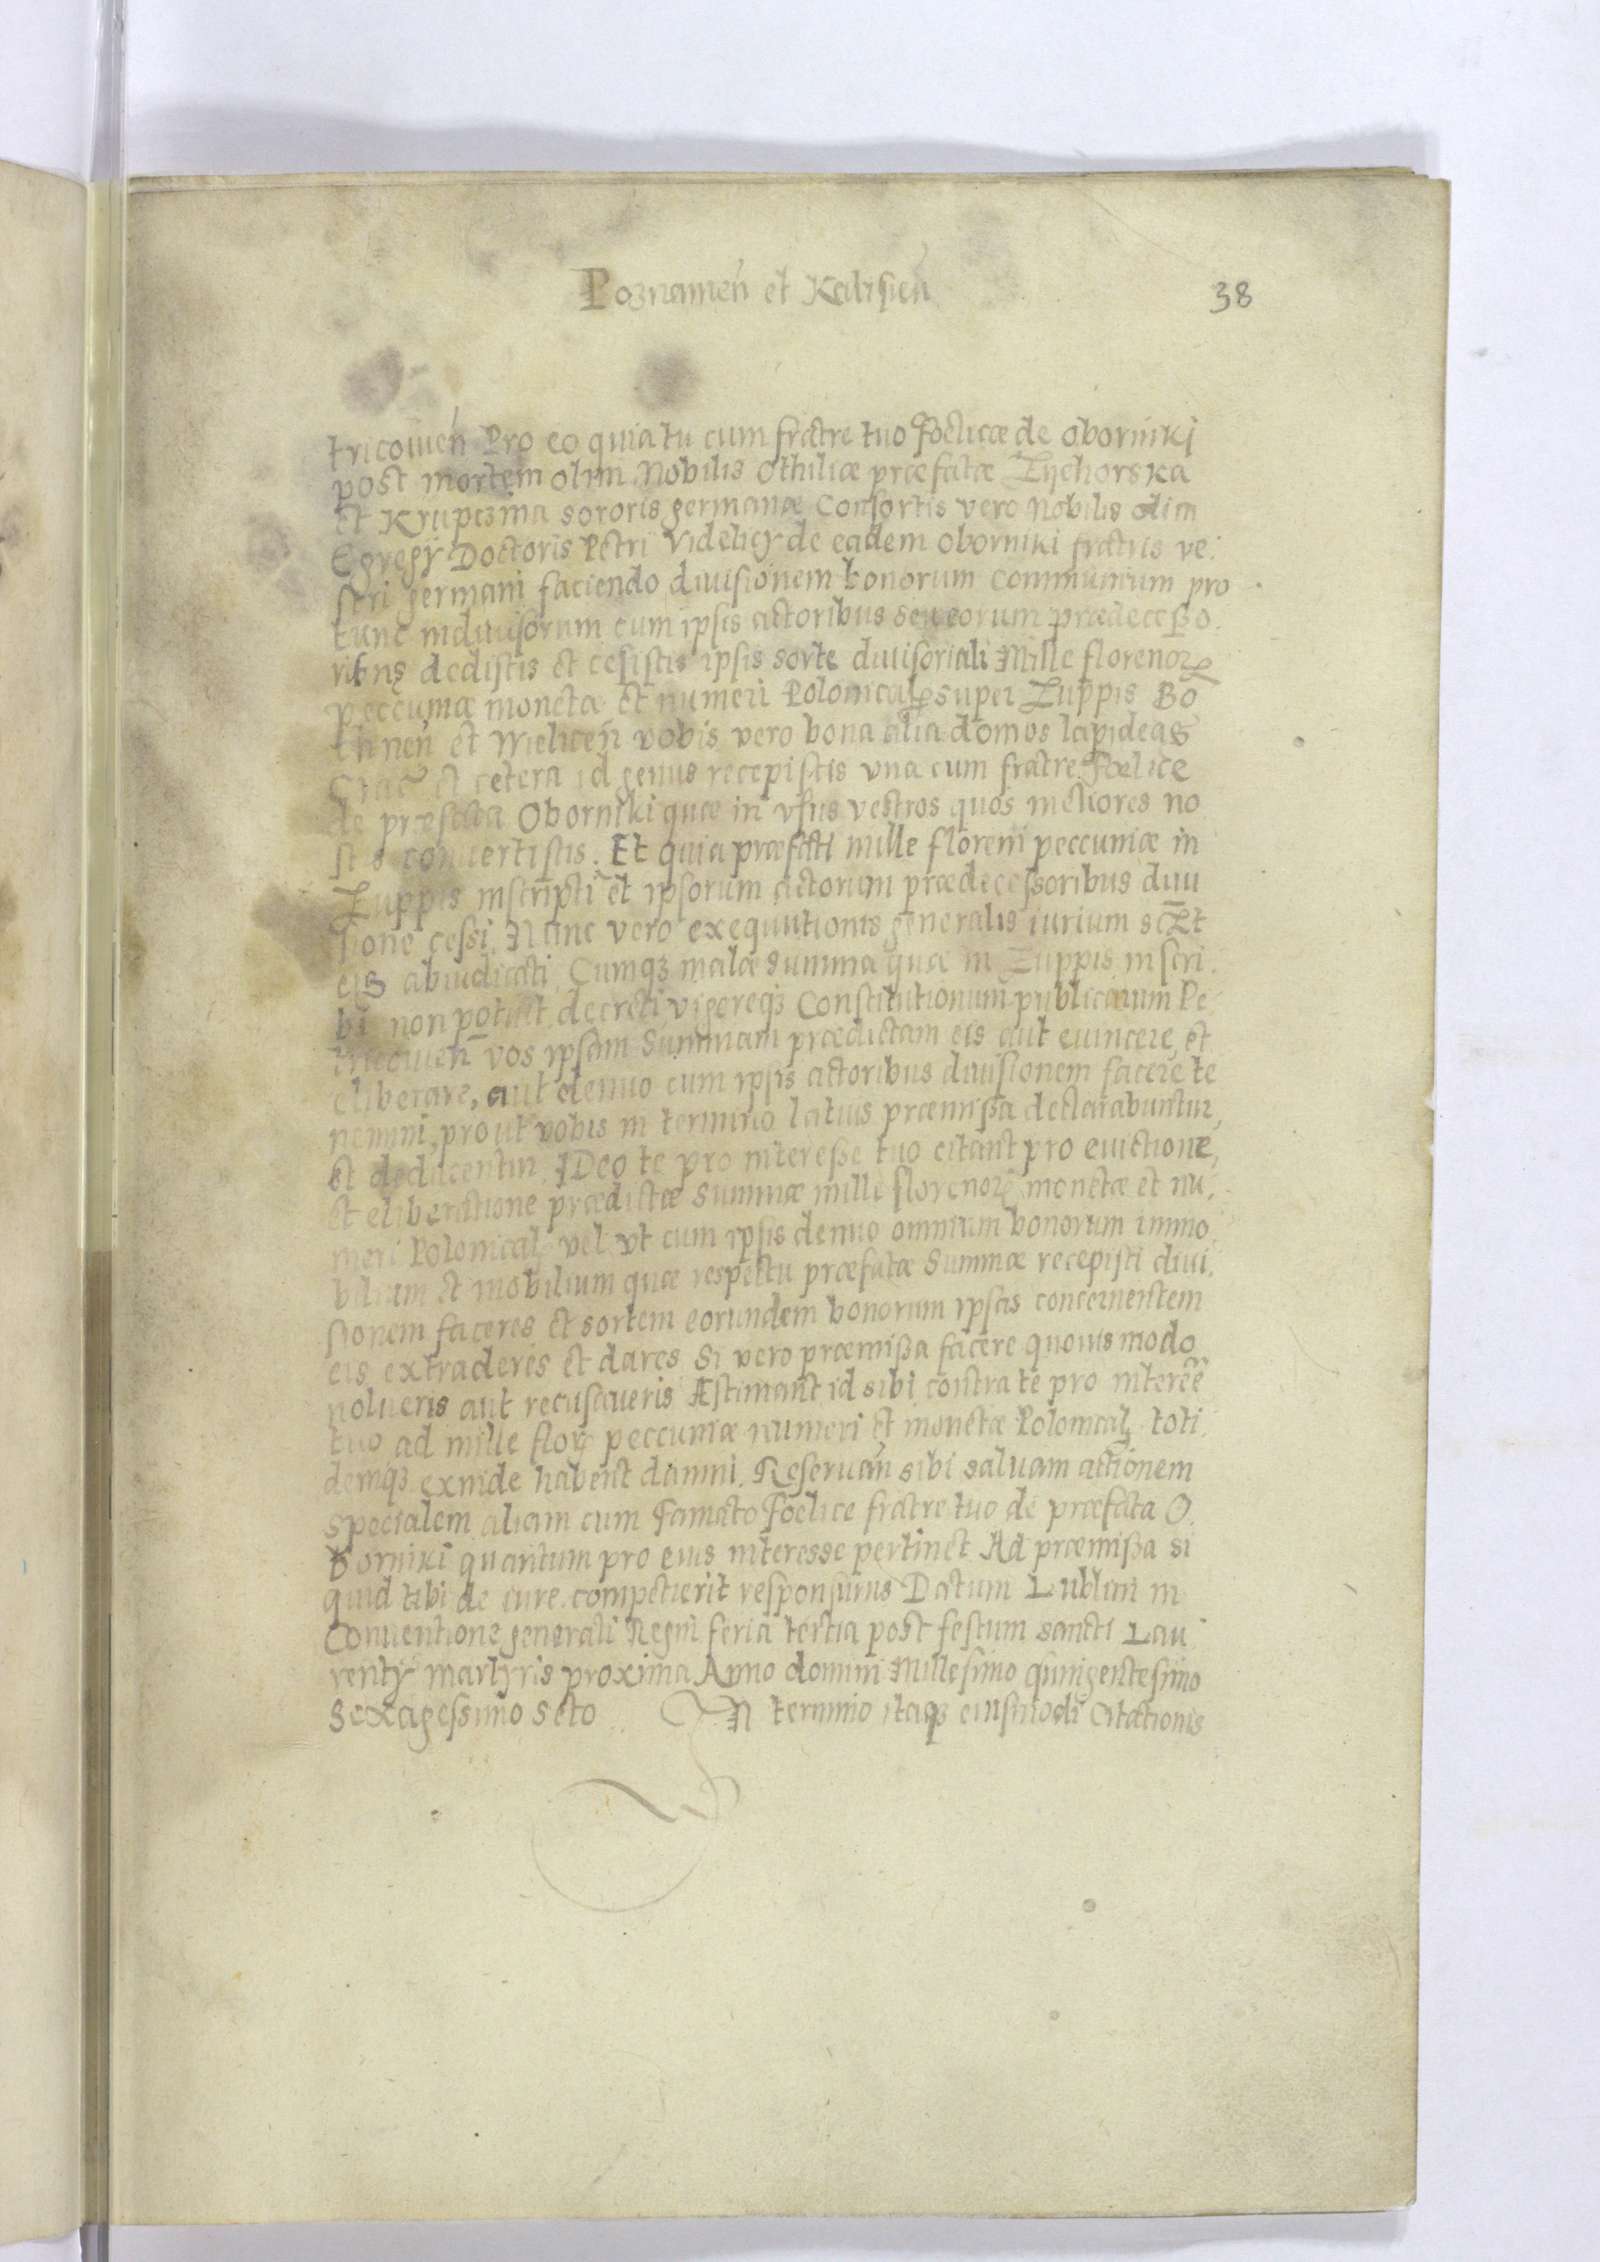 Poznameñ et Kalisieñ
38
tricouieñ Pro eo quia tu cum fratre tuo Foelicæ de oborniki
post mortem olim Nobilis Othiliæ præfatæ Zychorska
et Krupczina sororis germanæ Consortis vero Nobilis olim
Egregÿ Doctoris Petri Videlicz de eadem oborniki fratris ve
stri germani faciendo diuisionem bonorum communium pro
tunc indiuisorum cum ipsis actoribus seu eorum prædeceßo
ribus dedistis et cesistis ipsis sorte diuisoriali Mille florenorꝝ
peccuniæ monetæ et numeri Polonicalꝝ super Zuppis Bo
chneñ et Wieliceñ vobis vero bona alia domos lapideas
Crac̃ et cetera id genus recepistis vna cum fratre Fœlice
de præfata Oborniki quæ in vsus vestros quos meliores no
stis conuertistis. Et quia præfati mille floreni peccuniæ in
Zuppis inscripti et ipsorum actorum prædecessoribus diui
sione cessi. Nunc vero exequutionis generalis iurium sc̃t
eis abiudicati. Cumqꝫ mala summa quæ in Zuppis inscri
bi non potuit decreti vigereqꝫ Constitutionum publicarum Pe
tricouieñ vos ipsam Summam prædictam eis aut euincere, et
eliberare, aut denuo cum ipsis actoribus diuisionem facere te
nemini, prout vobis in termino latius præmißa declarabuntur,
et deducentur. IDeo te pro intereße tuo citant pro euictione,
et eliberatione prædictæ Summæ mille florenorꝝ monetæ et nu,
meri Polonicalꝫ vel vt cum ipsis denuo omnium bonorum immo
bilium et mobilium quæ respectu præfatæ Summæ recepisti diui,
sionem faceres et sortem eorundem bonorum ipsos concernentem
eis extraderes et dares Si vero præmißa facere quouis modo
nolueris aut recusaueris Æstimant id sibi contra te pro interẽe
tuo ad mille florꝝ peccuniæ numeri et monetæ Polonicalꝫ toti
demqꝫ exinde habent damni. Reseruañ sibi saluam actionem
specialem aliam cum Famato Foelice fratre tuo de præfata O
borniki quantum pro eius interesse pertinet Ad præmißa si
quid tibi de iure competierit responsurus Datum Lublini in
Conuentione generali Regni feria tertia post festum sancti Lau
rentÿ martyris proxima Anno domini Millesimo quingentesimo
Sexagessimo Scto In termino itaqꝫ eiusmodi Citationis